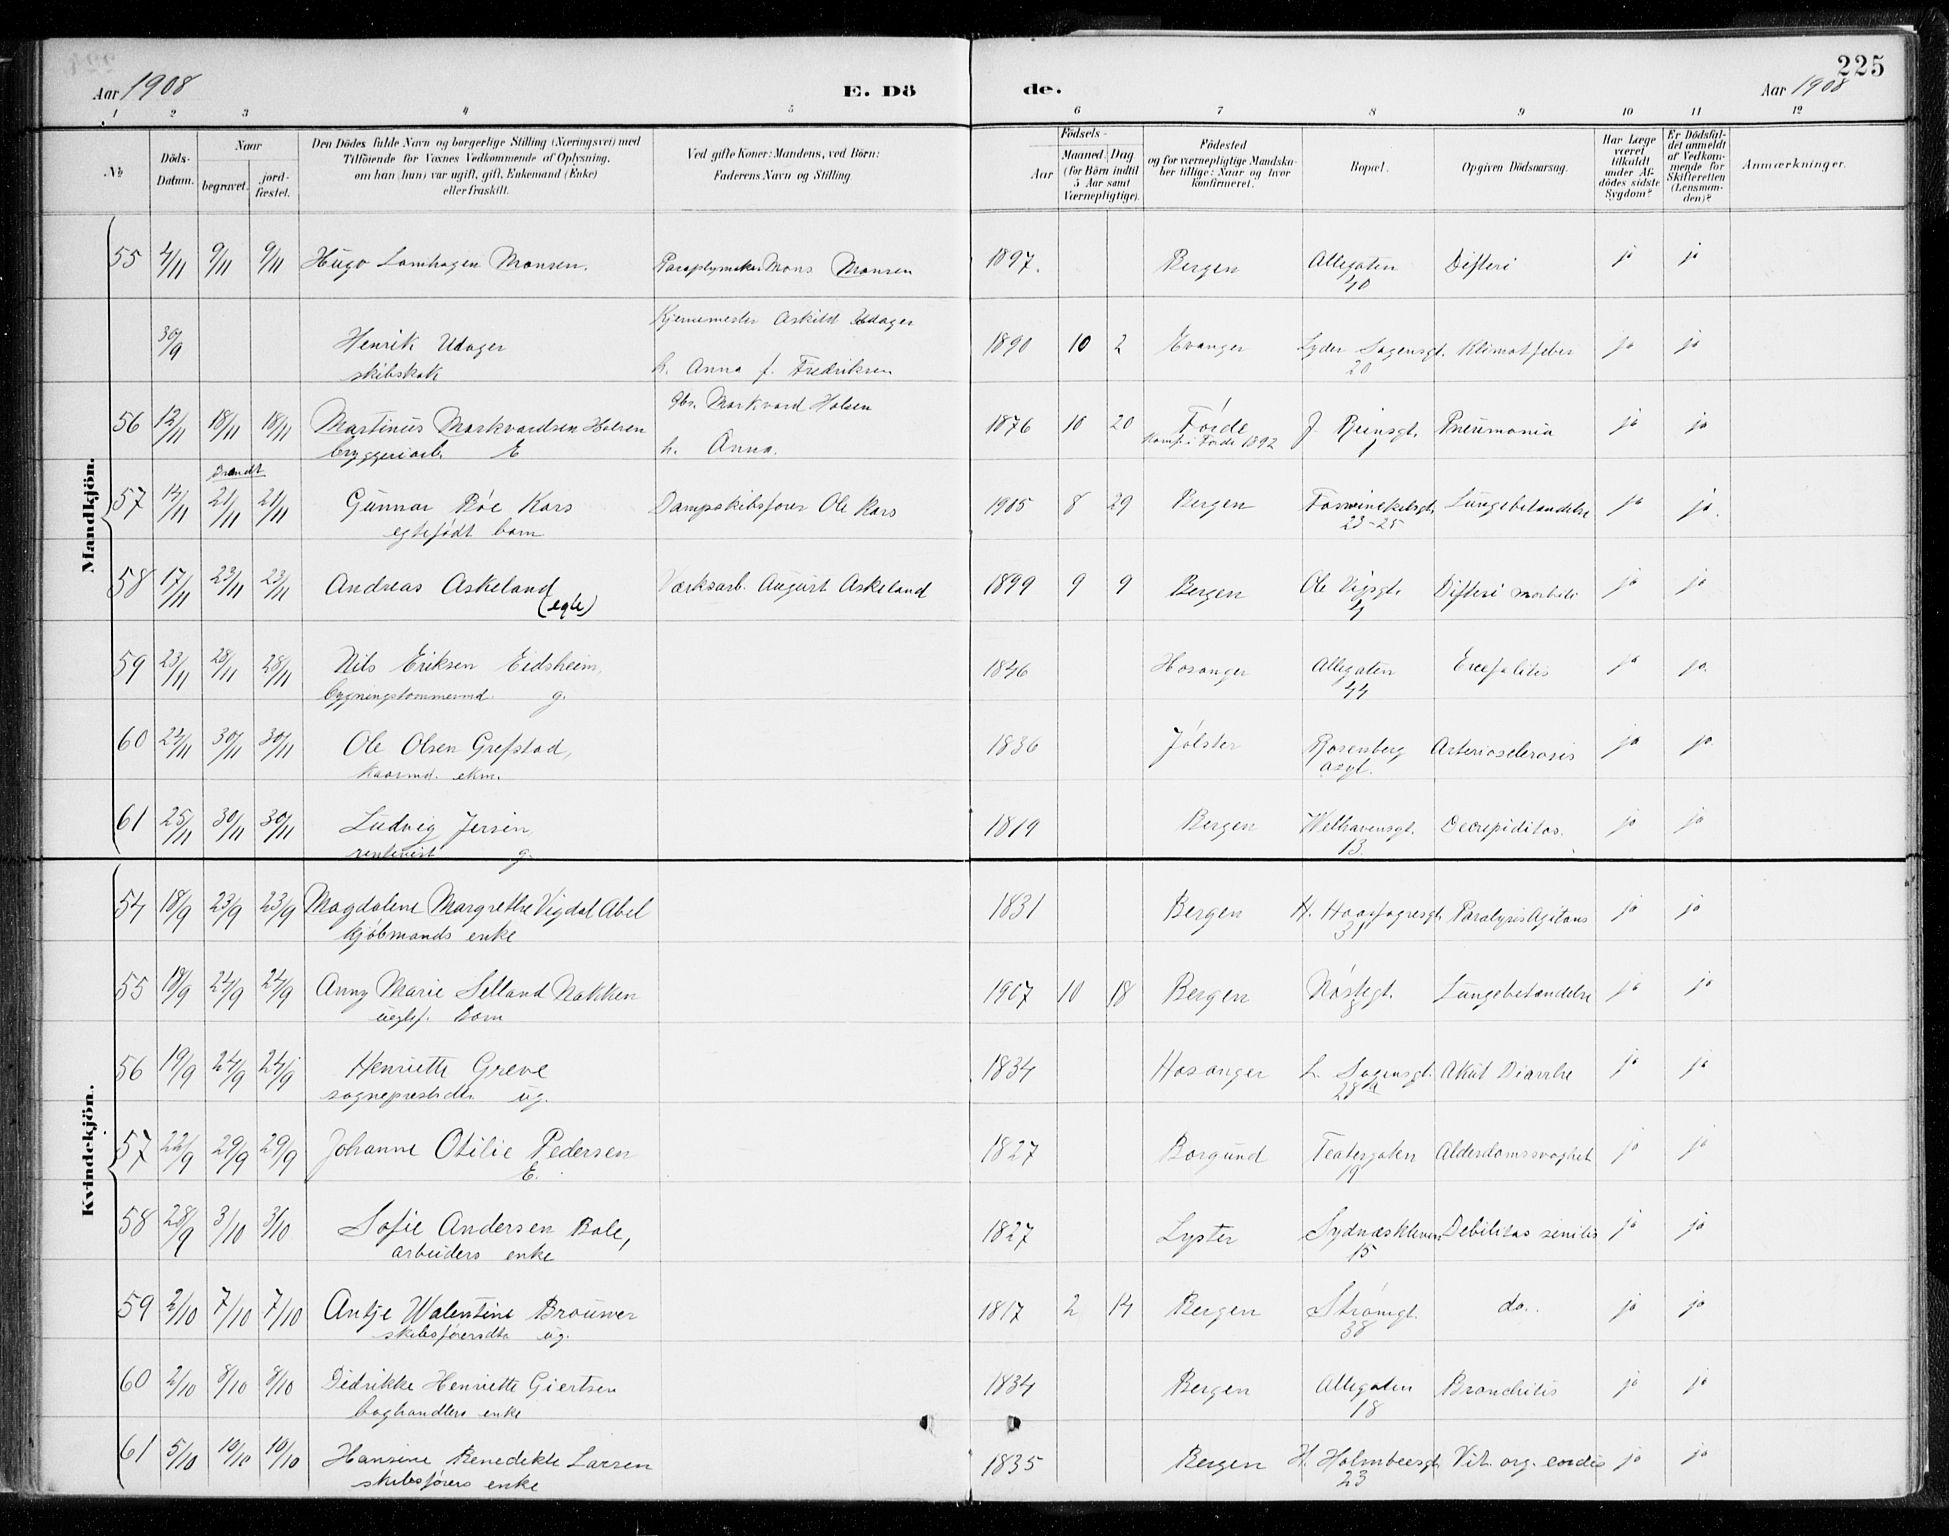 225
Aar 1908 E. Dö de. Aar 1908
1 2 3 4 5 6 7 8 9 10 11 12
№ Döds-Datum. Naar begravet. jordfæstet. Den Dödes fulde Navn og borgerlige Stilling (Næringsvei) med Tilföiende for Voxnes Vedkommende af Oplysning, om han (hun) var ugift, gift, Enkemand (Enke) eller fraskilt. Ved gifte Koner: Mandens, ved Börn: Faderens Navn og Stilling. Födsels- Aar Maaned. Dag (for Börn indtil 5 Aar samt Værnepligtige). Födested og for værnepligtige Mandskaber tillige: Naar og hvor konfirmeret. Bopæl. Opgiven Dödsaarsag. Har Læge været tilkaldt under Afdödes sidste Sygdom? Er Dödsfaldet anmeldt af Vedkommende for Skifteretten (Lensmanden)? Anmærkninger.
Mandkjön.
55 4/11 9/11 9/11 Hugo Lamhagen Monsen. Paraplymaker Mons Monsen 1897. Bergen Allegaten Difteri ja ja
40
Kjernemester Askild Udager
30/9 Henrik Udager 1890 10 2 Evanger Lyder Sagensgt. Klimatfeber ja ja
skibskok h. Anna f. Fredriksen 20
gbr. Markvard Holsen
56 12/11 18/11 18/11 Martinus Markvardsen Holsen 1876 10 20 Førde J. Reinsgt. Pneumonia ja ja
bryggeriarb. E h. Anna. Konf. i Førde 1892 1
Brendt
57 14/11 21/11 21/11 Gunnar Bøe Kars Dampskibsfører Ole Kars 1905 8 29 Bergen Forvinckelsgt. Lungebetændelse ja ja.
egtefødt barn 23-25
58 17/11 23/11 23/11 Andreas Askeland Værksarb. August Askeland 1899 9 9 Bergen Ole Vigsgt. Difteri Morbili ja ja
(egte) 4
59 23/11 28/11 28/11 Nils Eriksen Eidsheim, 1846 Hosanger Allegaten Encefalitis ja ja.
bygningstømmermd. g. 44
60 24/11 30/11 30/11 Ole Olsen Grefstad, 1836 Jølster Rosenberg Arteriosclerosis ja ja.
kaarmd. ekm. asyl.
61 25/11 30/11 30/11 Ludvig Jersin, 1819 Bergen Welhavensgt. Decrepiditas. ja ja
rentenist g. 13.
Kvindekjön.
54 18/9 23/9 23/9 Magdalene Margrethe Vigdal Abel 1831 Bergen H. Haarfagresgt. Paralysis Agitans ja ja
kjøbmands enke 31
55 18/9 24/9 24/9 Anny Marie Selland Nakken 1907 10 18 Bergen Nøstegt. Lungebetændelse ja ja
uegtef. Barn 8
56 19/9 24/9 24/9 Henriette Greve 1834 Hosanger L. Sagensgt. Akut Diarrhe ja ja
sogneprestdtr. ug. 28a
57 22/9 29/9 29/9 Johanne Otilie Pedersen 1827 Borgund Teatergaten Alderdomssvaghet ja ja
E. 19
58 28/9 3/10 3/10 Sofie Andersen Bole, 1827 Lyster Sydnæskleven Debilitas senilis ja ja
arbeiders enke 15
59 2/10 7/10 7/10 Antje Walentine Brouwer 1817 2 14 Bergen Strømgt. do. ja ja
skibsførerdtr ug. 38
60 2/10 8/10 8/10 Didrikke Henriette Giertsen 1834 Bergen Allegaten Bronchitis ja ja
boghandlers enke 18
61 5/10 10/10 10/10 Hansine Benedikte Larsen 1835 Bergen H. Holmboesgt. Vit. org. cordis ja ja
skibsførers enke 23